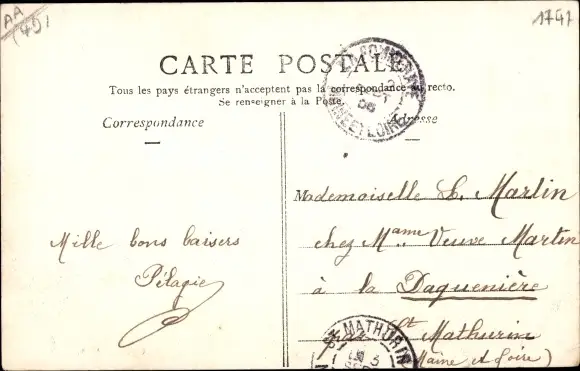 AA
(49)
1747
CARTE POSTALE
Tous les pays étrangers n'acceptent pas la correspondance au recto.
Se renseigner à la Poste.
Correspondance
Adresse
MAINE ET LOIRE
06
Mademoiselle L. Martin
chez Mame Veuve Martin
à la Daguenière
St Mathurin
(Maine et Loire)
Mille bons baisers
Pélagie
MATHURIN